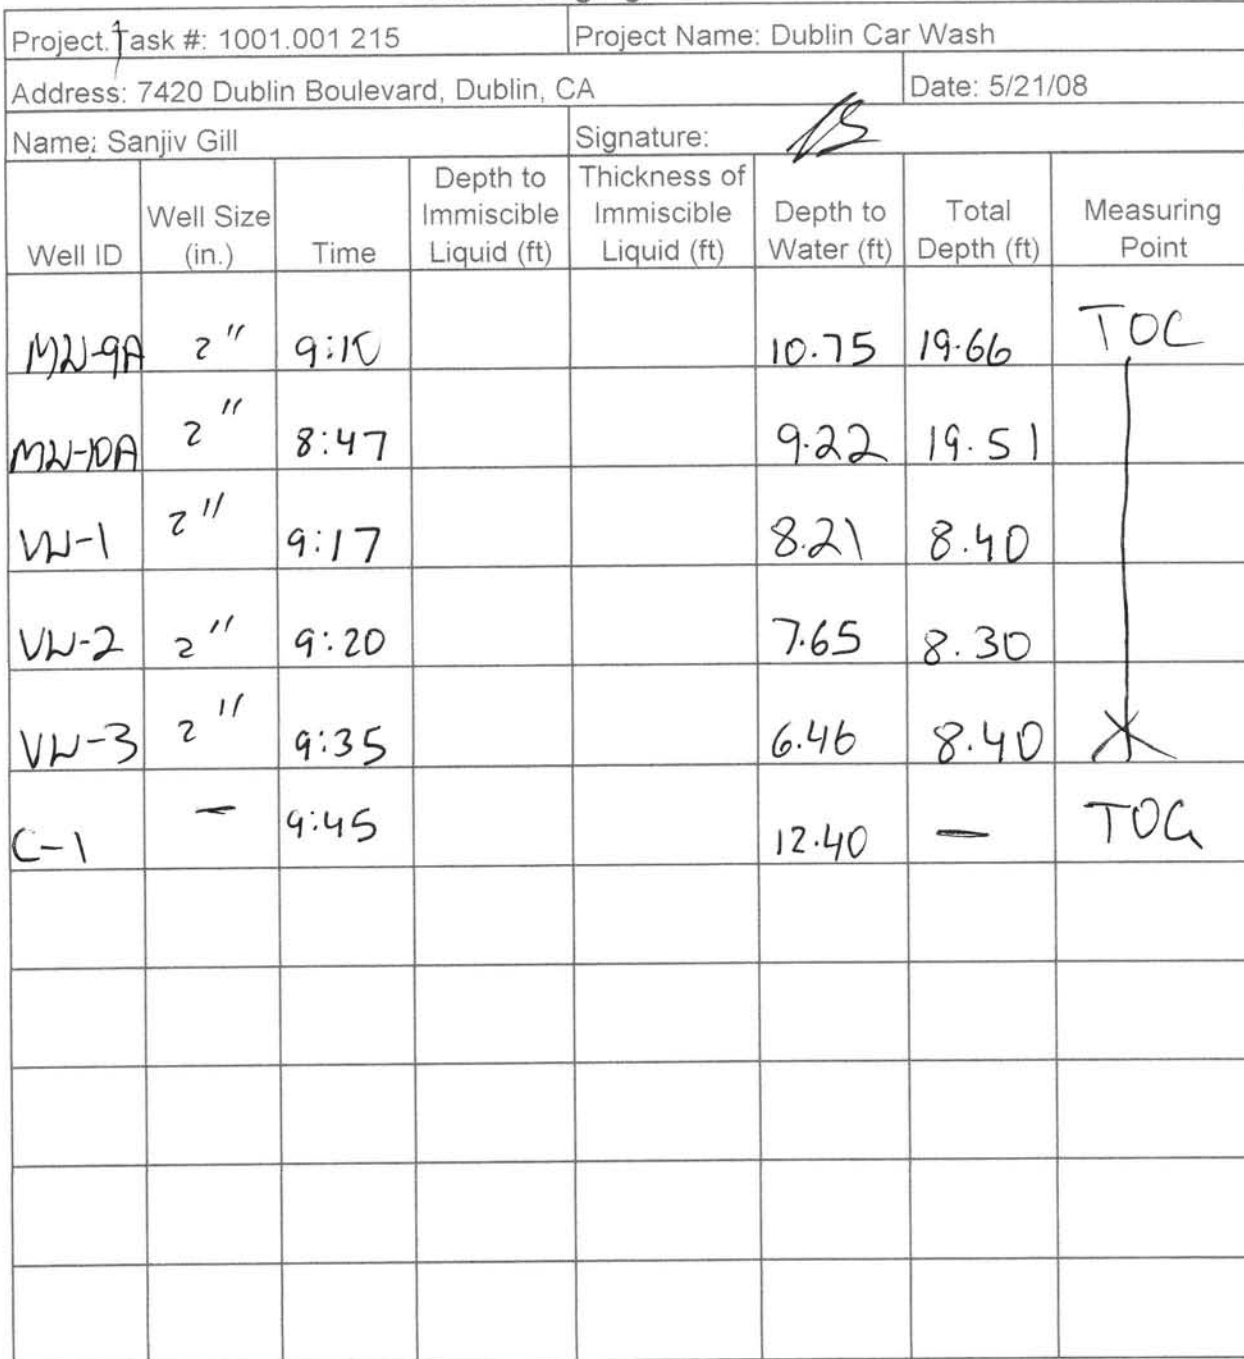 Project.Task #: 1001.001 215 Project Name: Dublin Car Wash
Address: 7420 Dublin Boulevard, Dublin, CA Date: 5/21/08
Name: Sanjiv Gill Signature:
Well ID Well Size (in.) Time Depth to Immiscible Liquid (ft) Thickness of Immiscible Liquid (ft) Depth to Water (ft) Total Depth (ft) Measuring Point
MW-9A 2" 9:10 10.75 19.66 TOC
MW-10A 2" 8:47 9.22 19.51
VW-1 2" 9:17 8.21 8.40
VW-2 2" 9:20 7.65 8.30
VW-3 2" 9:35 6.46 8.40
C-1 — 9:45 12.40 — TOG